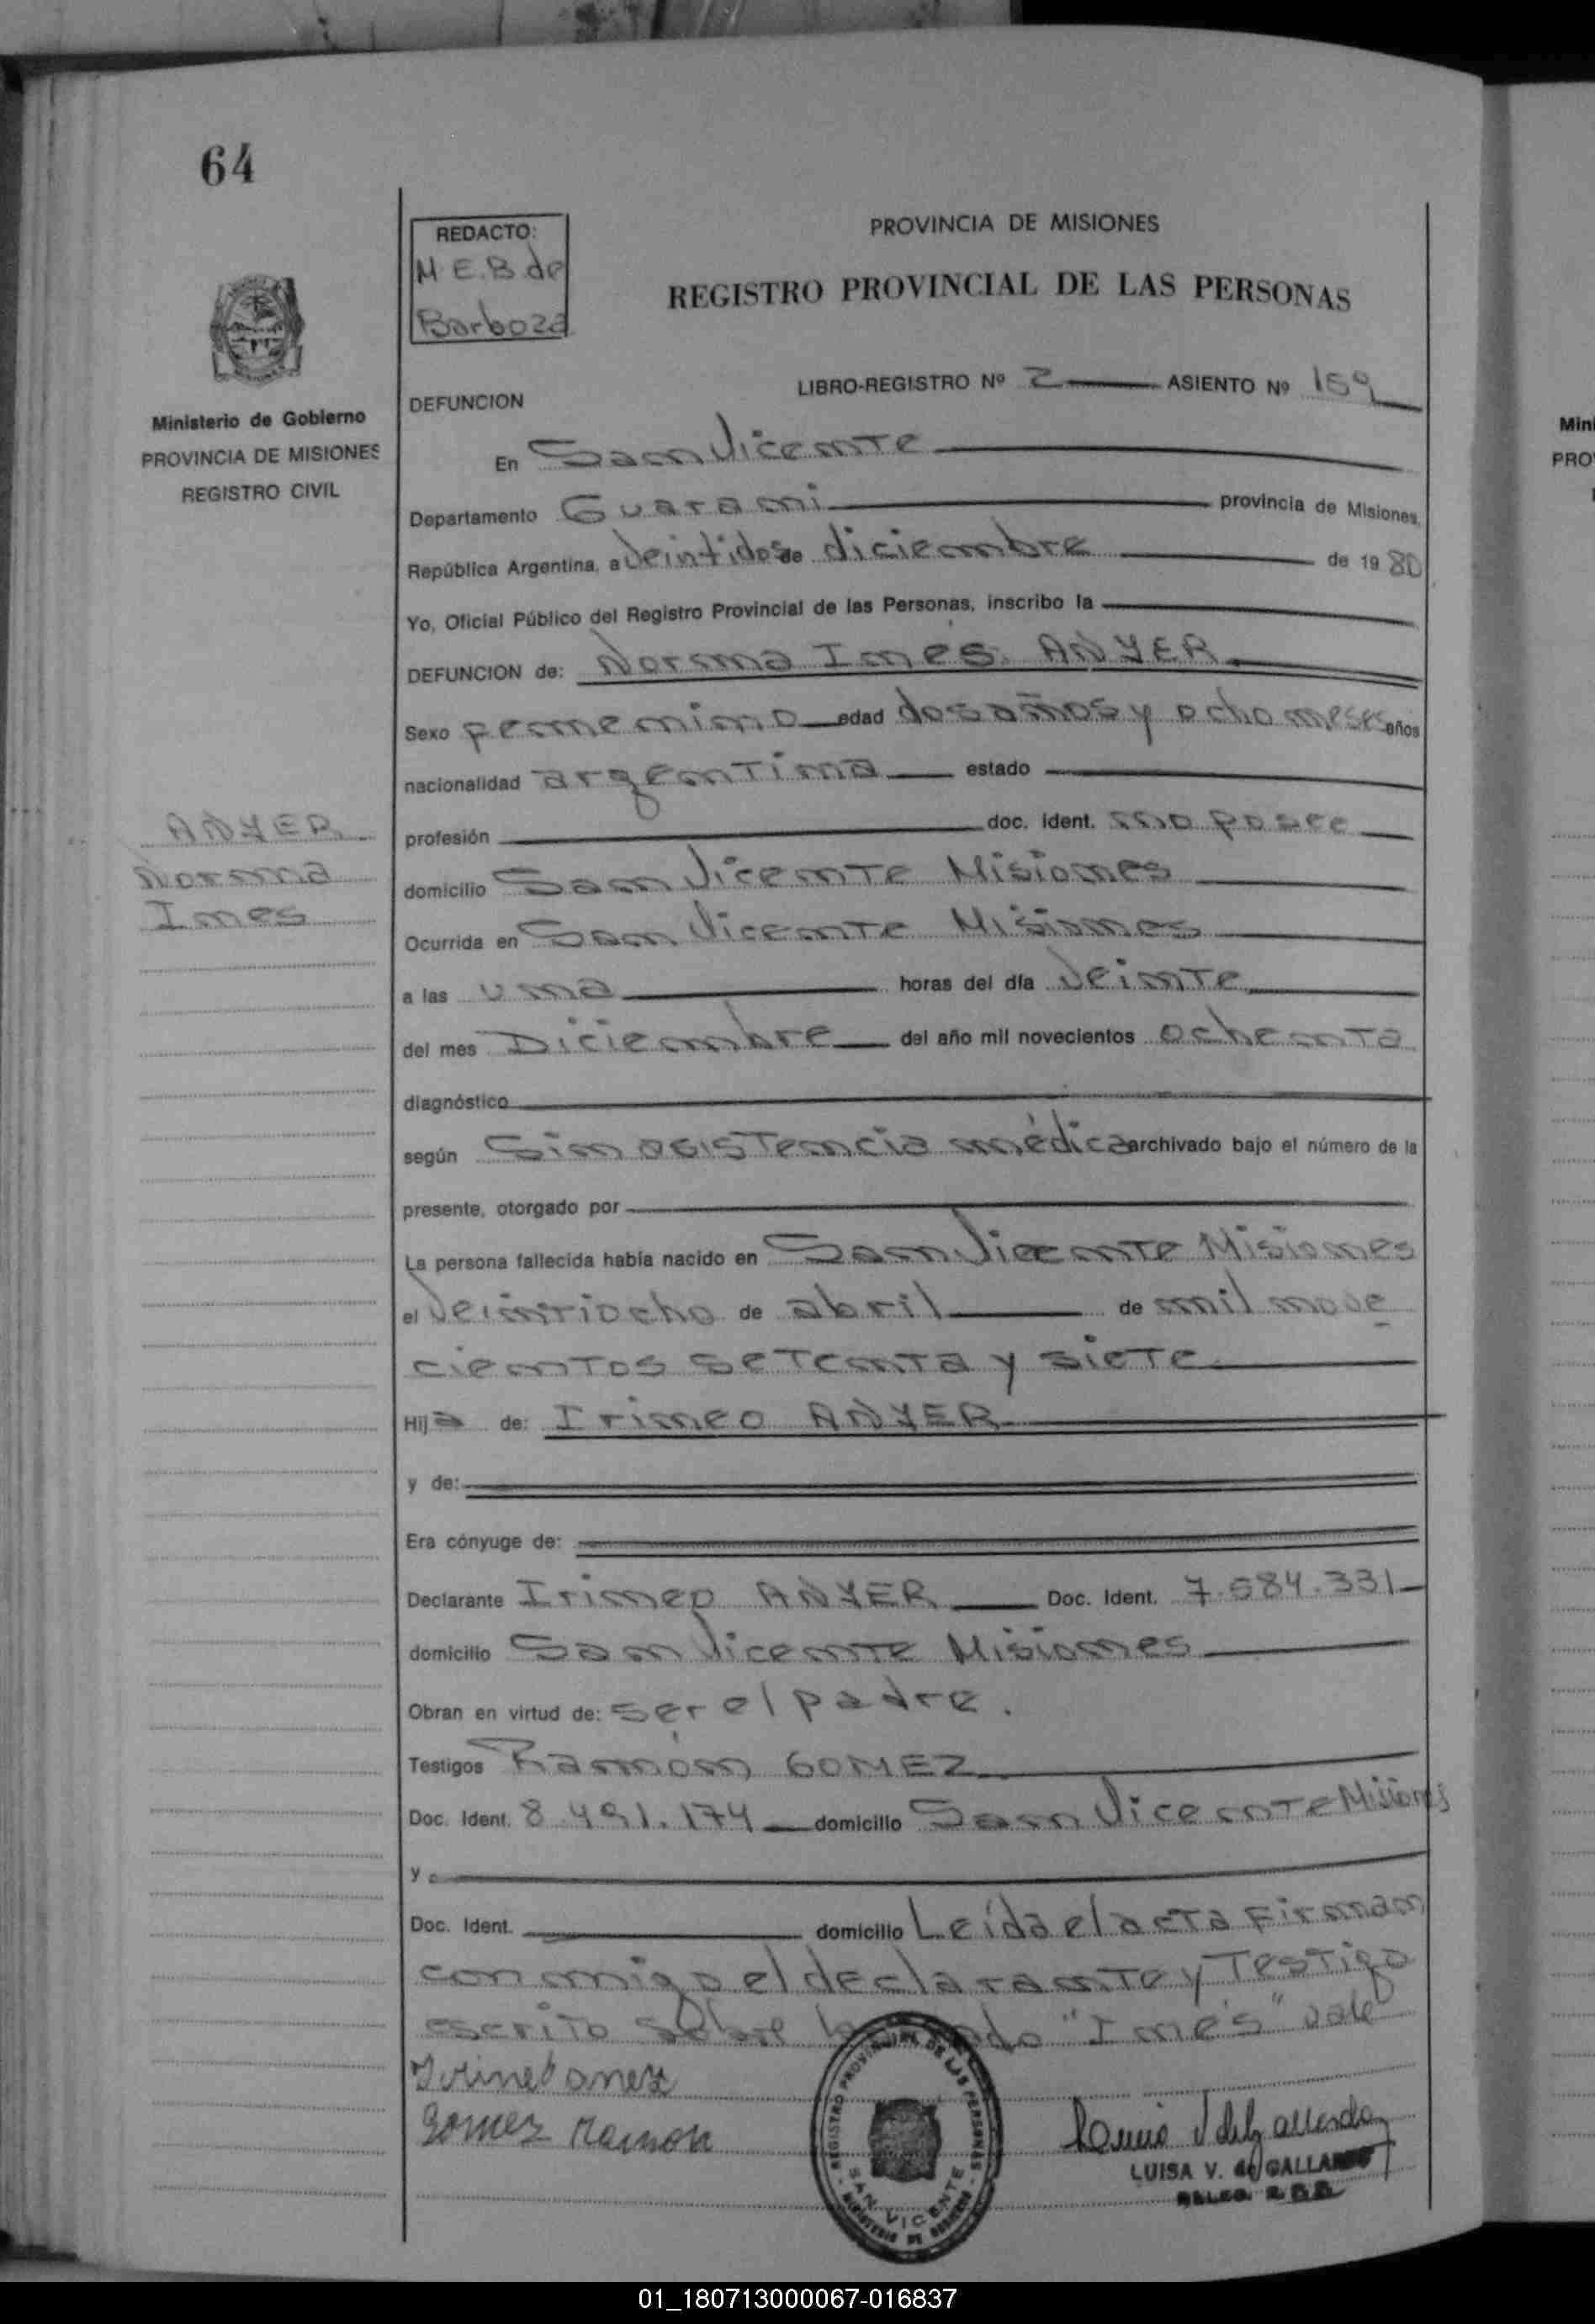 64
REDACTO:
M.E.B. de
Barboza
PROVINCIA DE MISIONES
REGISTRO PROVINCIAL DE LAS PERSONAS
Ministerio de Gobierno
PROVINCIA DE MISIONES
REGISTRO CIVIL
LIBRO-REGISTRO Nº 2 ASIENTO Nº 159
DEFUNCION
En San Vicente
Departamento Guarani provincia de Misiones,
República Argentina, a Veintidos de diciembre de 1980
Yo, Oficial Público del Registro Provincial de las Personas, inscribo la
DEFUNCION de: Norma Inés ANYER
Sexo femenino edad dos años y ocho meses años
nacionalidad argentina estado
ANYER
Norma
Ines
profesión doc. ident. no posee
domicilio San Vicente Misiones
Ocurrida en San Vicente Misiones
a las una horas del día Veinte
del mes Diciembre del año mil novecientos ochenta
diagnóstico
según Sin asistencia médica archivado bajo el número de la
presente, otorgado por
La persona fallecida había nacido en San Vicente Misiones
el Veintiocho de abril de mil nove
cientos setenta y siete
Hija de: Irineo ANYER
y de:
Era cónyuge de:
Declarante Irineo ANYER Doc. Ident. 7.584.331
domicilio San Vicente Misiones
Obran en virtud de: ser el padre.
Testigos Ramón GOMEZ
Doc. Ident. 8.491.174 domicilio San Vicente Misiones
y
Doc. Ident. domicilio Leída el acta firman
conmigo el declarante y Testigo
escrito sobre "Inés" vale
Gomez Ramon
REGISTRO PROVINCIAL DE LAS PERSONAS
SAN VICENTE
MINISTERIO DE GOBIERNO
LUISA V. de GALLARDO
01_180713000067-016837